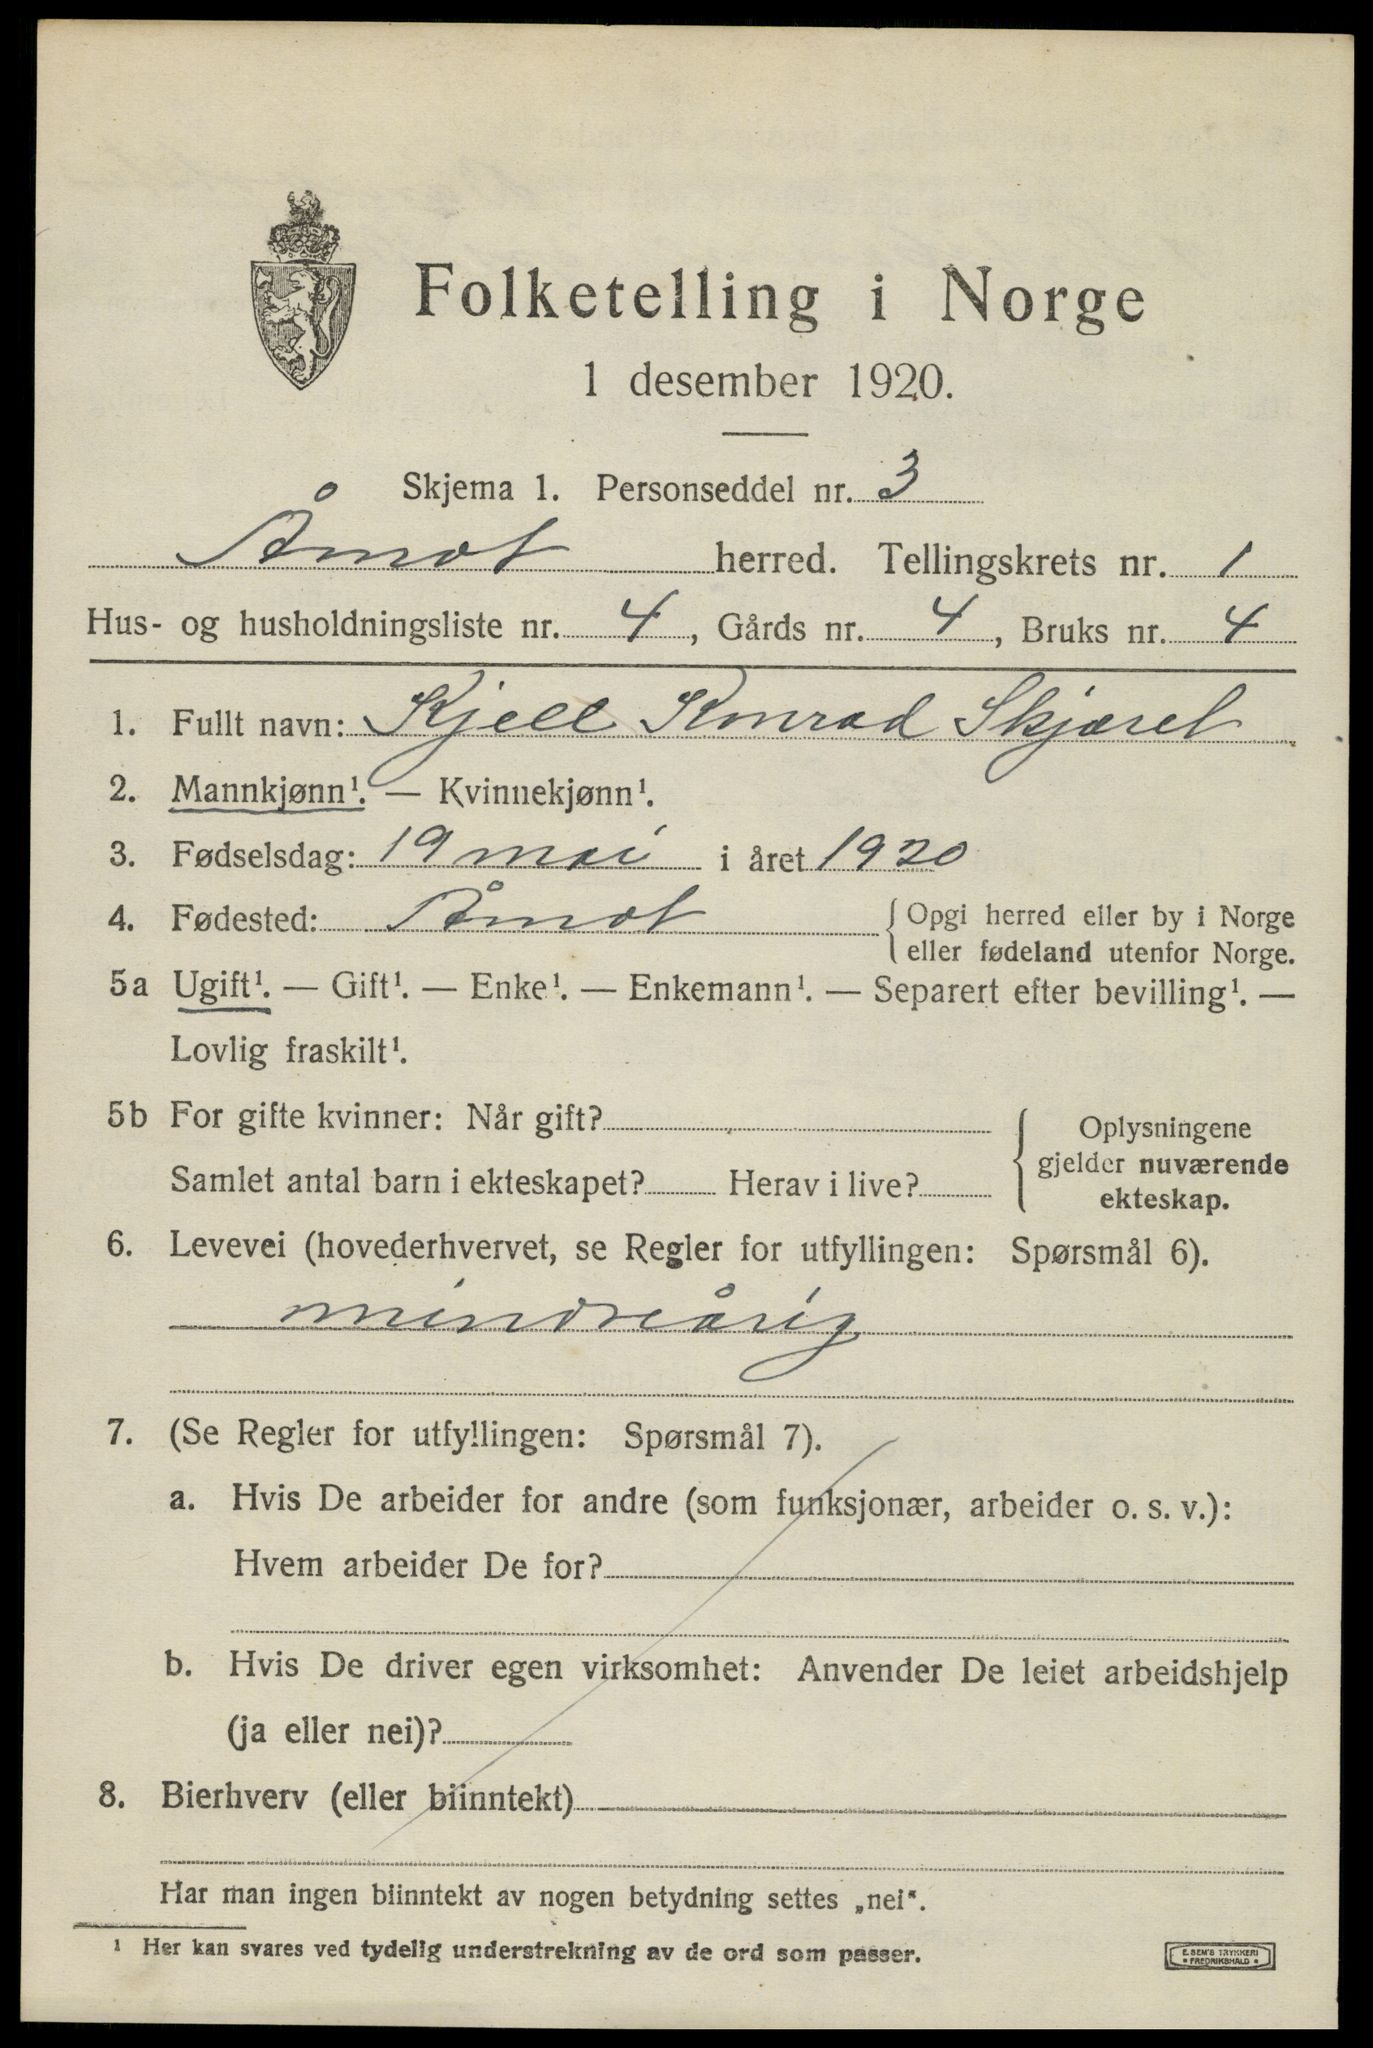 Folketelling i Norge
1 desember 1920.
Skjema 1. Personseddel nr. 3
Åmot herred. Tellingskrets nr. 1
Hus- og husholdningsliste nr. 4, Gårds nr. 4, Bruks nr. 4
1. Fullt navn: Kjell Konrad Skjæret
2. Mannkjønn¹. — Kvinnekjønn¹.
3. Fødselsdag: 19 mai i året 1920
4. Fødested: Åmot { Opgi herred eller by i Norge
eller fødeland utenfor Norge.
5a Ugift¹. — Gift¹. — Enke¹. — Enkemann¹. — Separert efter bevilling¹. —
Lovlig fraskilt¹.
5b For gifte kvinner: Når gift?
Samlet antal barn i ekteskapet? Herav i live?
{ Oplysningene
gjelder nuværende
ekteskap.
6. Levevei (hovederhvervet, se Regler for utfyllingen: Spørsmål 6).
mindreårig
7. (Se Regler for utfyllingen: Spørsmål 7).
a. Hvis De arbeider for andre (som funksjonær, arbeider o. s. v.):
Hvem arbeider De for?
b. Hvis De driver egen virksomhet: Anvender De leiet arbeidshjelp
(ja eller nei)?
8. Bierhverv (eller biinntekt)
Har man ingen biinntekt av nogen betydning settes „nei".
¹ Her kan svares ved tydelig understrekning av de ord som passer.
E. SEM'S TRYKKERI
FREDRIKSHALD